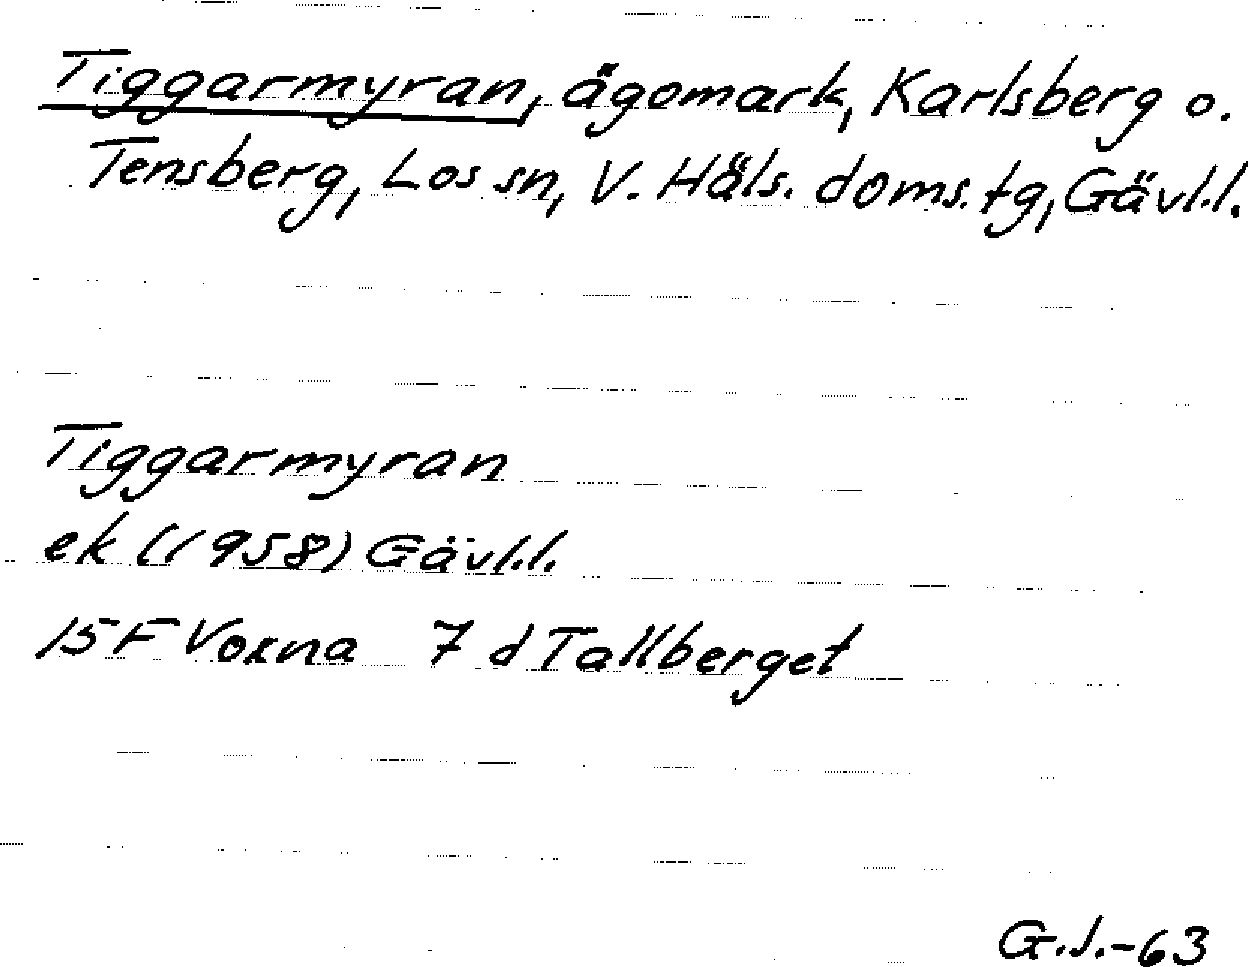 Tiggarmyran, ägomark, Karlsberg o.
Tensberg, Los sn, V. Häls. doms. tg, Gävl.l.
Tiggarmyran
ek (1958) Gävl.l.
15 F Voxna 7 d Tallberget
G.J.-63